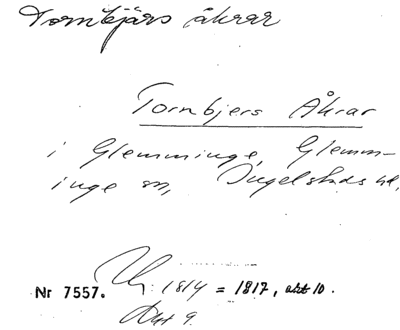 Tornbjärs åkrar
Tornbjers Åkrar
i Glemminge, Glemm-
inge sn, Ingelstads hd.
Nr 7557. 1814 = 1817, akt 10.
Akt 9.